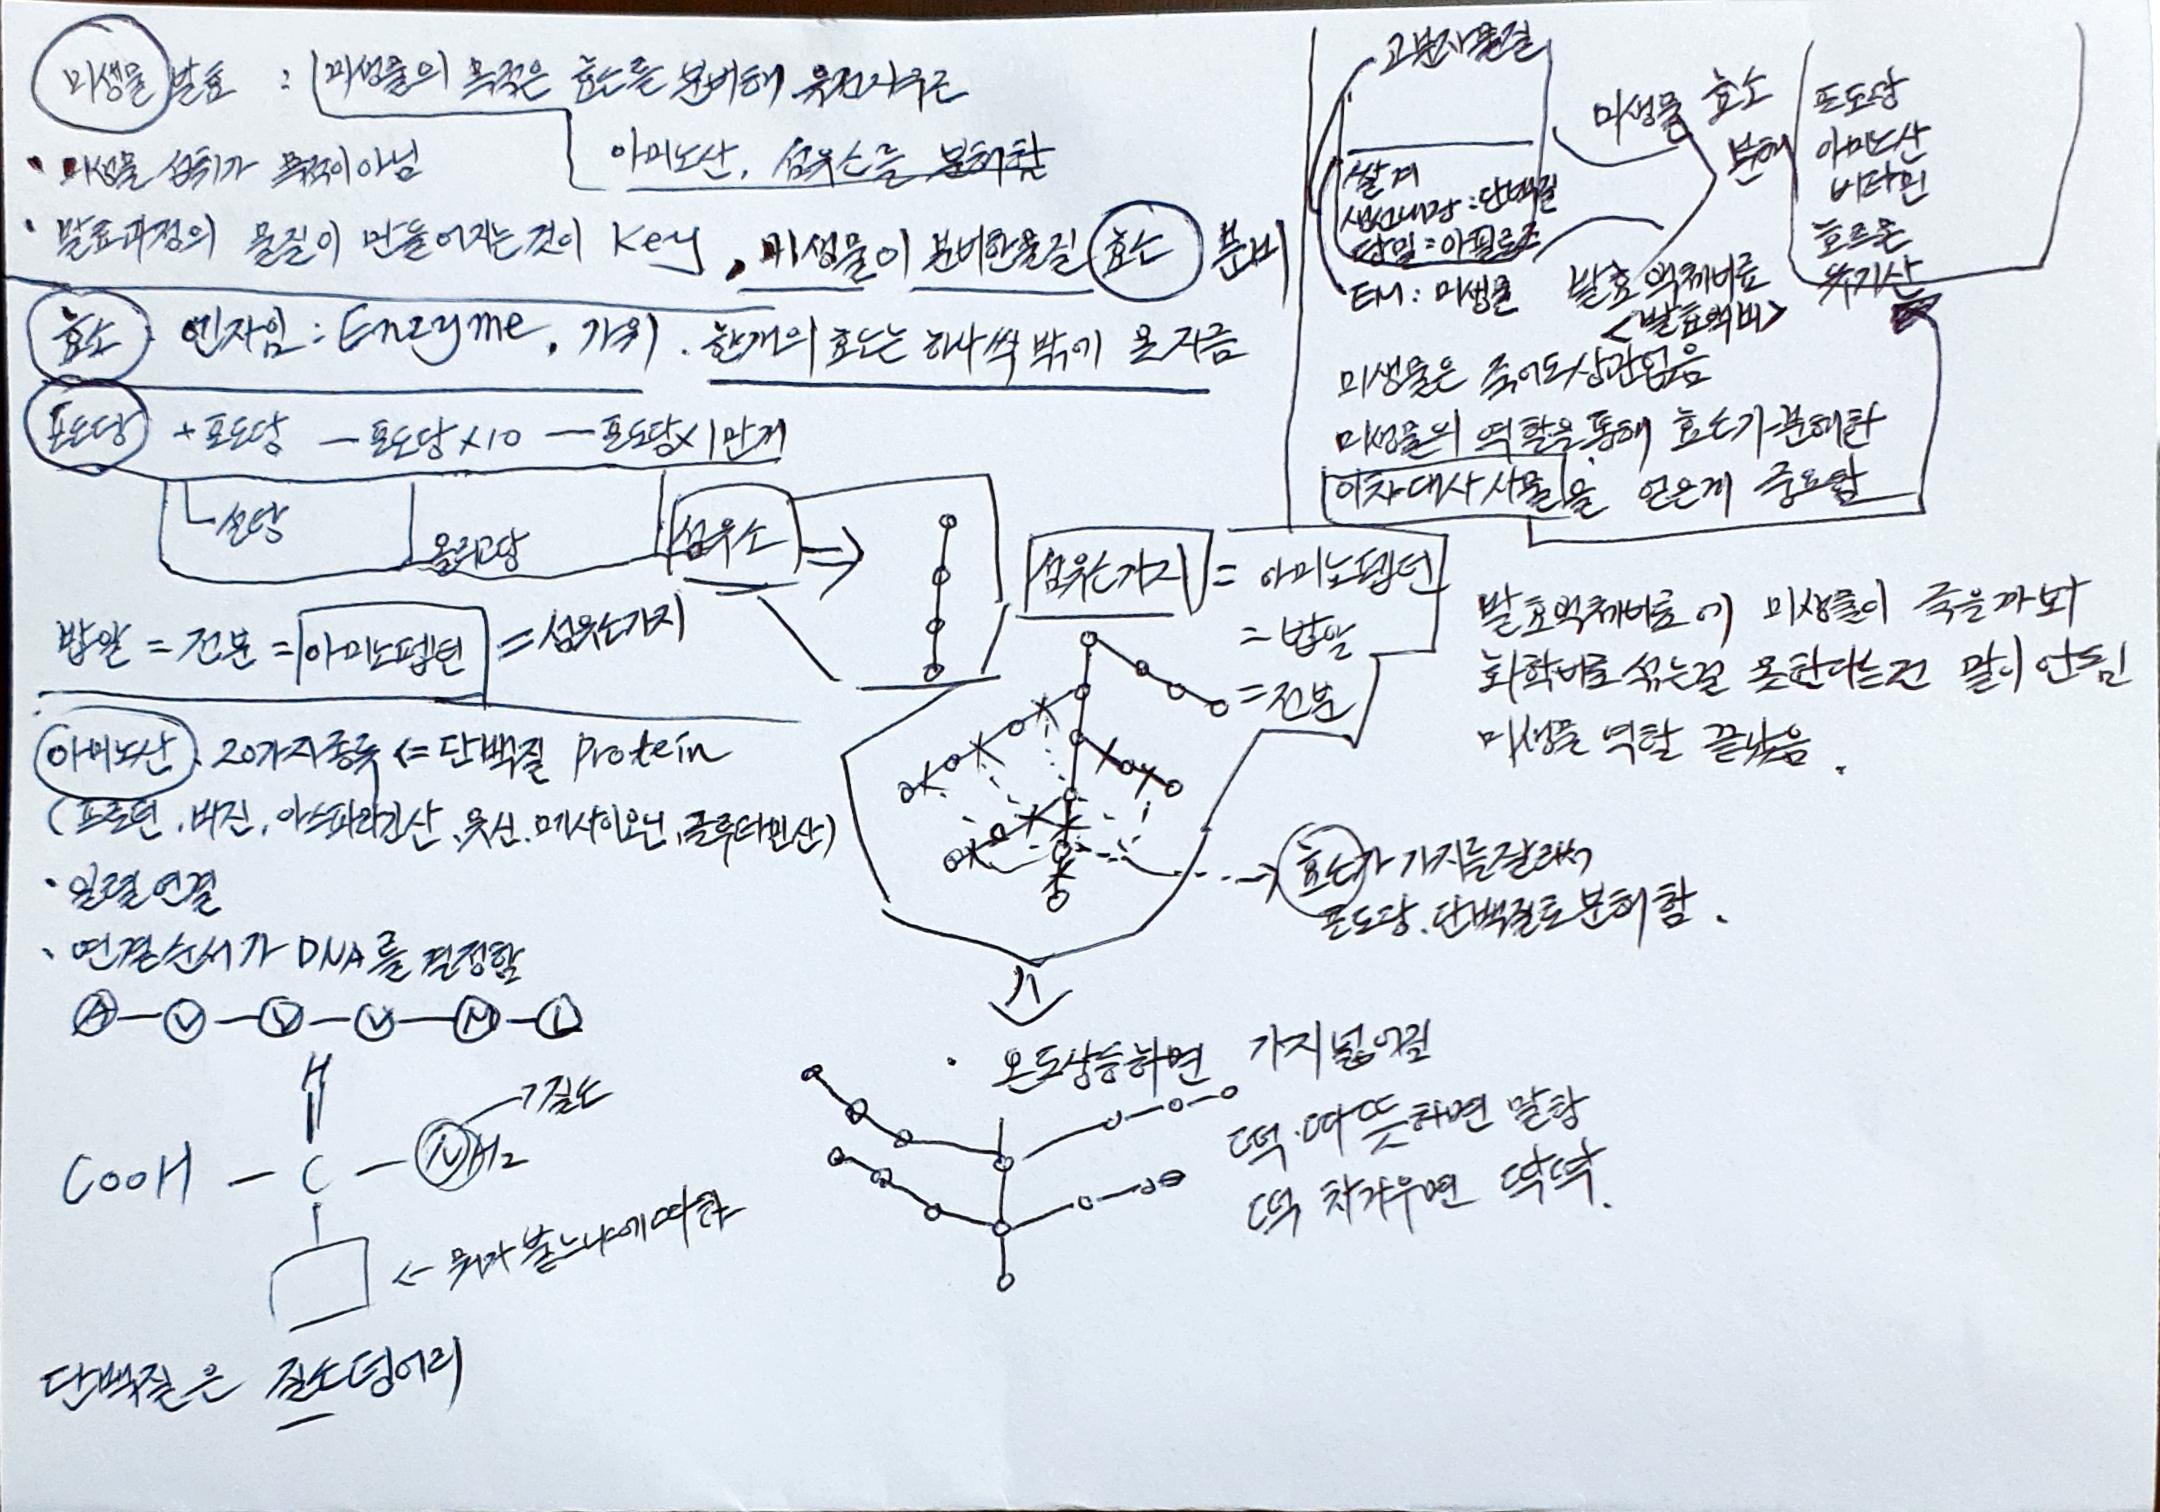 미생물 발효 : 미생물의 목적은 효소를 분비해
아미노산, 섬유소를 분해함
· 미생물 섭취가 목적이 아님
· 발효과정의 물질이 만들어지는것이 Key, 미생물이 분비한물질 효소 분비
효소. 엔자임 : Enzyme, 가위. 한개의 효소는 하나씩 밖에 못 자름
포도당 + 포도당 — 포도당×10 — 포도당×1만개
설당
올리고당
섬유소 ⇒
밥알 = 전분 = 아미노펩틴 = 섬유소가지
섬유소가지 = 아미노펩틴
= 밥알
= 전분
아미노산. 20가지종류 <= 단백질 protein
(프로틴, 아스파라긴산, 메사이오닌, 글루타민산)
· 일렬연결
· 연결순서가 DNA를 결정함
A — V — V — V — M — L
H
질소
COOH — C — NH2
← 뭐가 붙느냐에따라
단백질은 질소덩어리
효소가 가지를잘라서
포도당.단백질로분해함.
· 온도상승하면 가지넓어짐
떡.따뜻하면 말랑
떡 차가우면 딱딱.
고분자물질
쌀겨
생선내장 : 단백질
당밀 :
EM : 미생물
미생물 효소
분해
발효액체비료
<발효액비>
포도당
아미노산
비타민
호르몬
유기산
미생물은 죽어도상관없음
미생물의 역할을통해 효소가분해한
이차대사사물질을 얻은게 중요함
발효액체비료에 미생물이 죽을까봐
화학비료 섞는걸 못한다는건 말이 안됨
미생물 역할 끝났음.